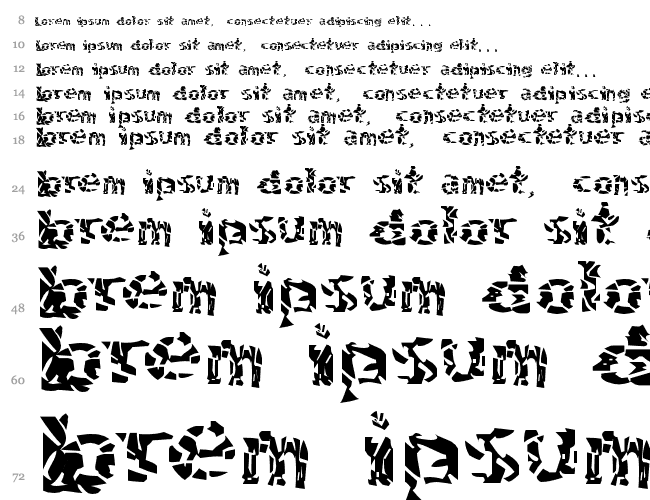 8 Lorem ipsum dolor sit amet, consectetuer adipiscing elit...
10 Lorem ipsum dolor sit amet, consectetuer adipiscing elit...
12 Lorem ipsum dolor sit amet, consectetuer adipiscing elit...
14 Lorem ipsum dolor sit amet, consectetuer adipiscing e
16 Lorem ipsum dolor sit amet, consectetuer adipis
18 Lorem ipsum dolor sit amet, consectetuer a
24 Lorem ipsum dolor sit amet, cons
36 Lorem ipsum dolor sit
48 Lorem ipsum dolor
60 Lorem ipsum d
72 Lorem ipsum